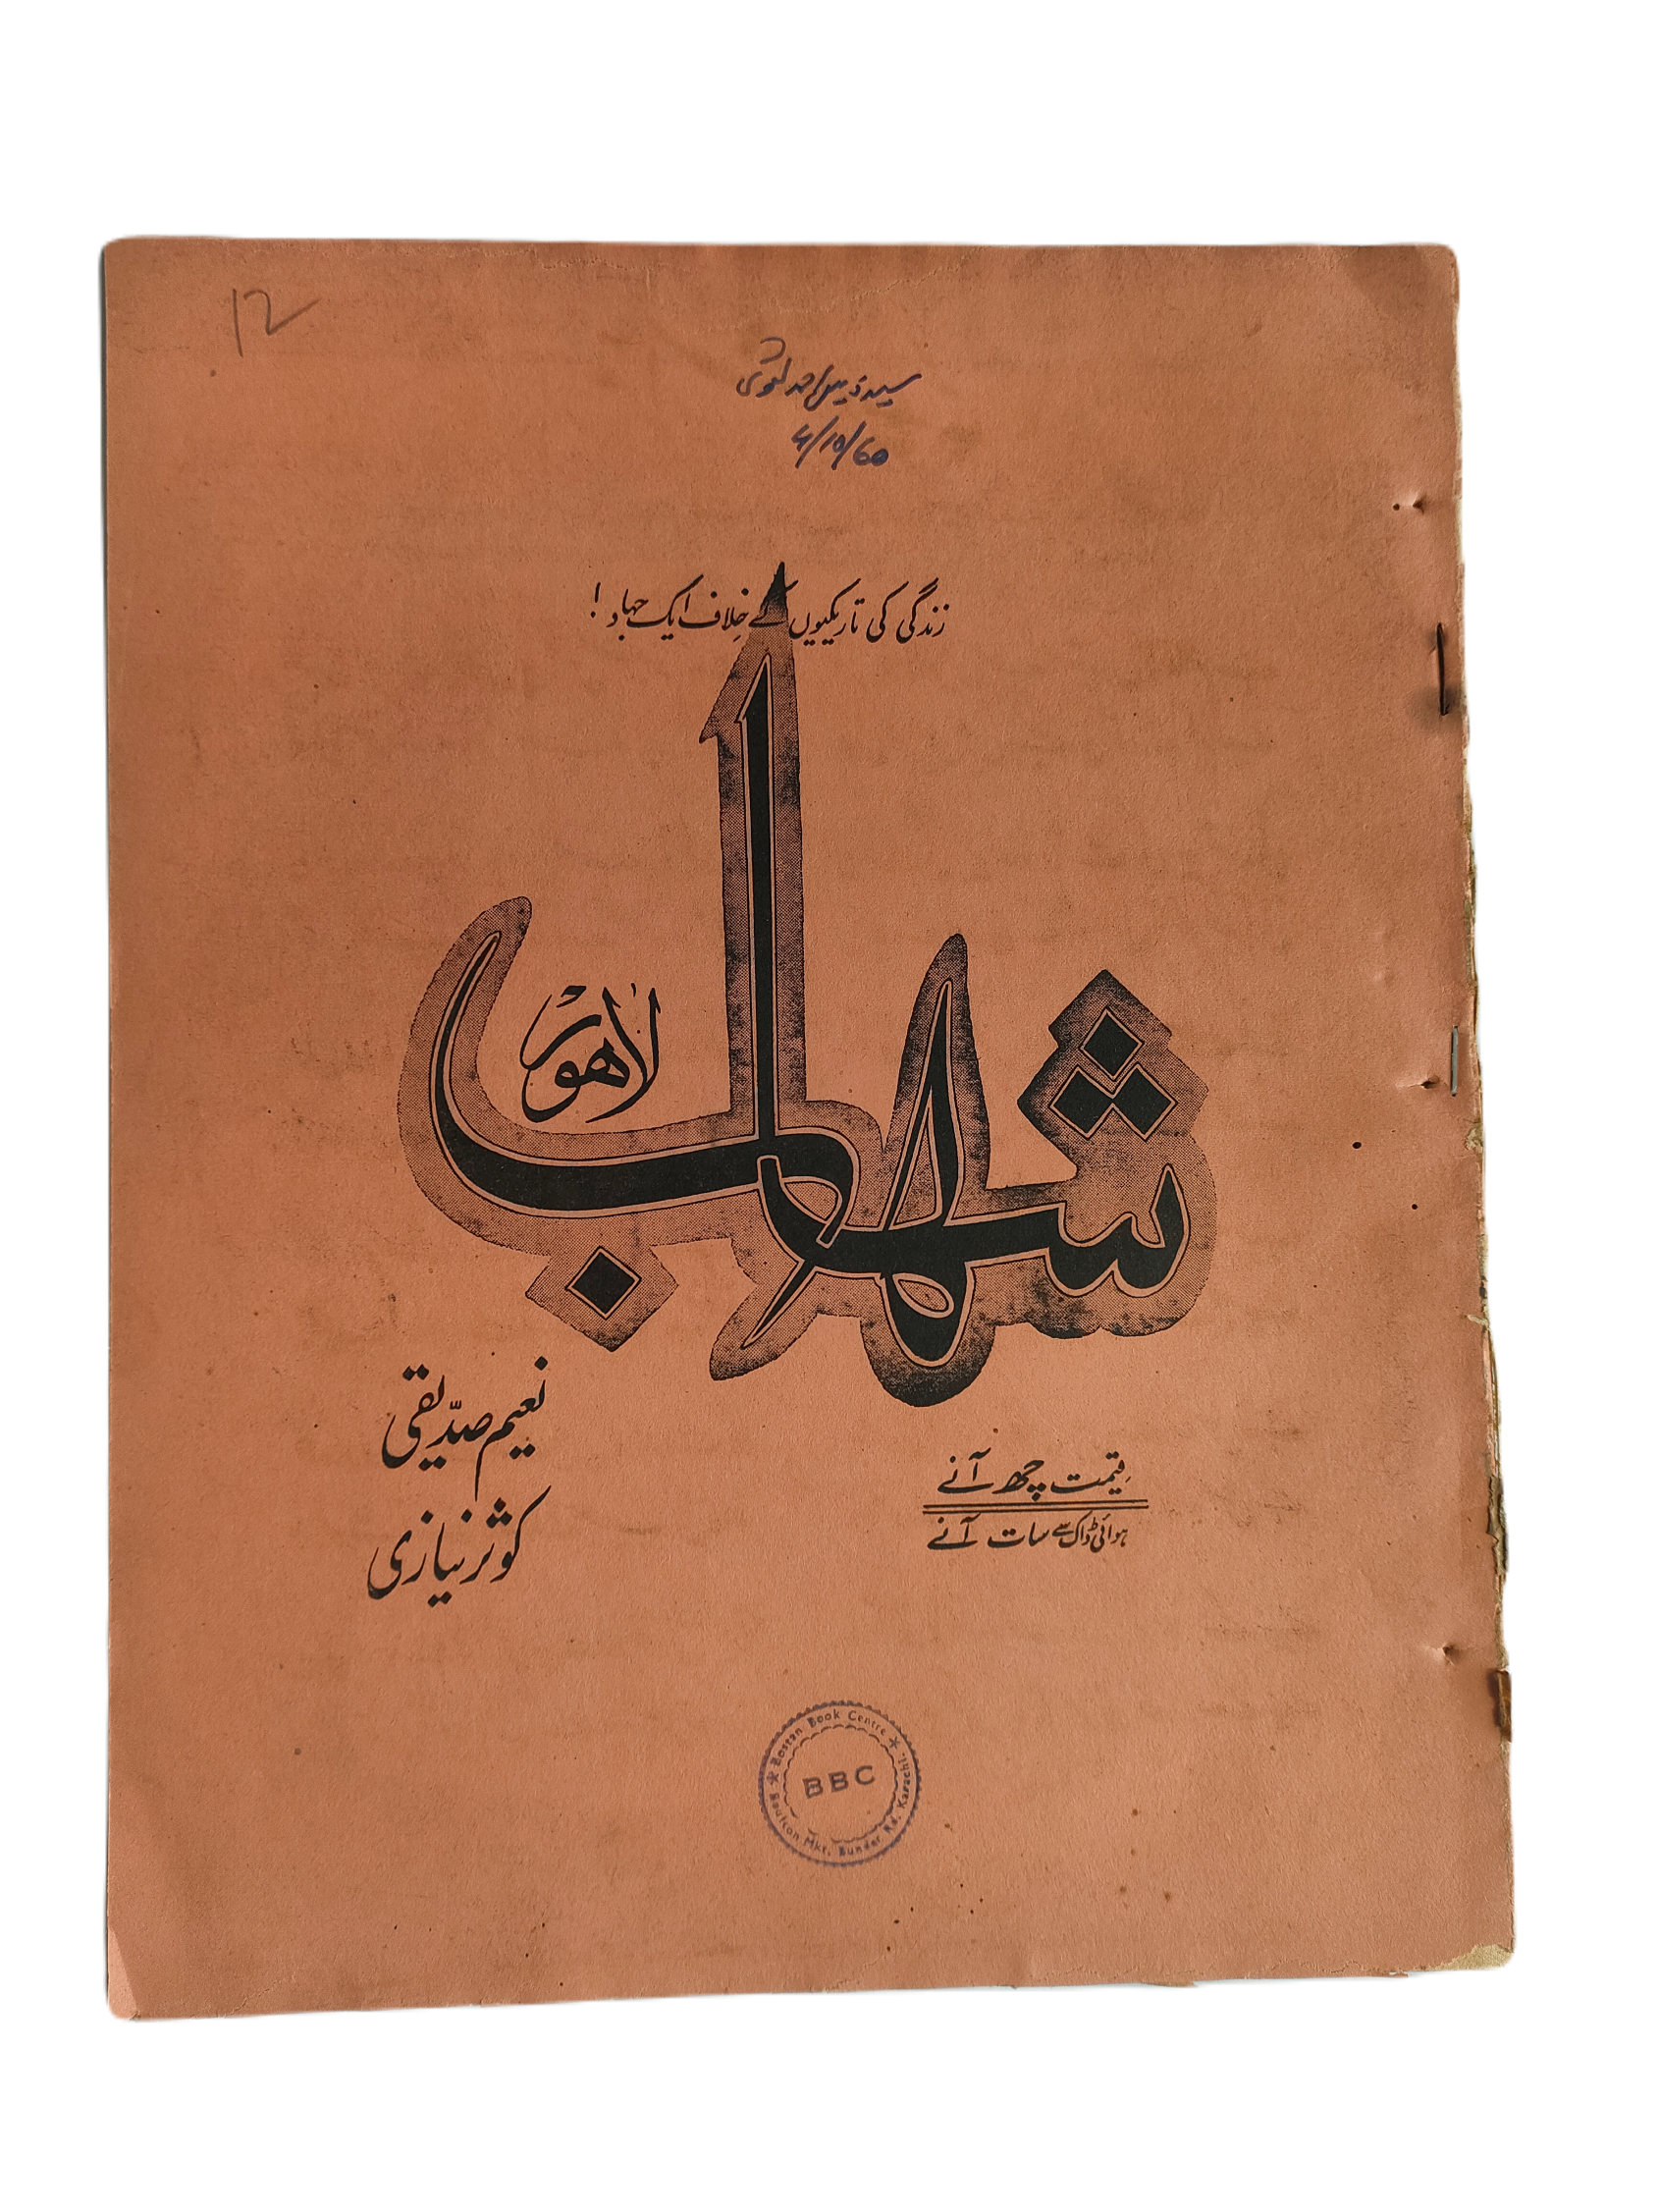 12
سید
4/10/60
زندگی کی تاریکیوں کے خلاف ایک جہاد!
شہاب
لاہور
نعیم صدیقی
کوثر نیازی
قیمت چھ آنے
ہوائی ڈاک سے سات آنے
★ Bostan Book Centre ★
BBC
Boulton Mkt, Bunder Rd, Karachi.